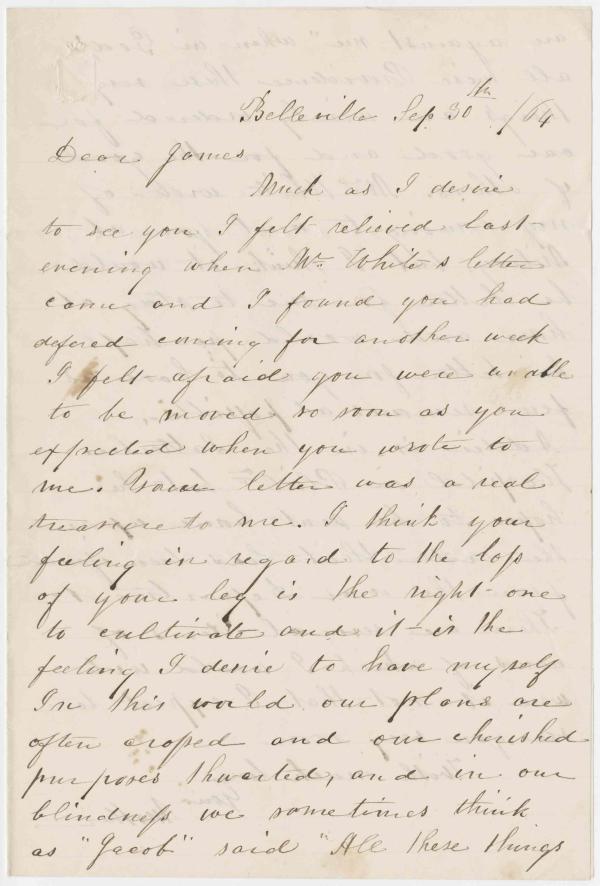 Belleville Sep 30th /64
Dear James
Much as I desire
to see you I felt relieved last
evening when Mr. White s letter
came and I found you had
defered coming for another week
I felt afraid you were unable
to be moved so soon as you
expected when you wrote to
me. Your letter was a real
treasure to me. I think your
feeling in regard to the loss
of your leg is the right one
to cultivate and it is the
feeling I desire to have myself
In this world our plans are
often crossed and our cherished
purposes thwarted, and in our
blindness we sometimes think
as "Jacob" said "All these things